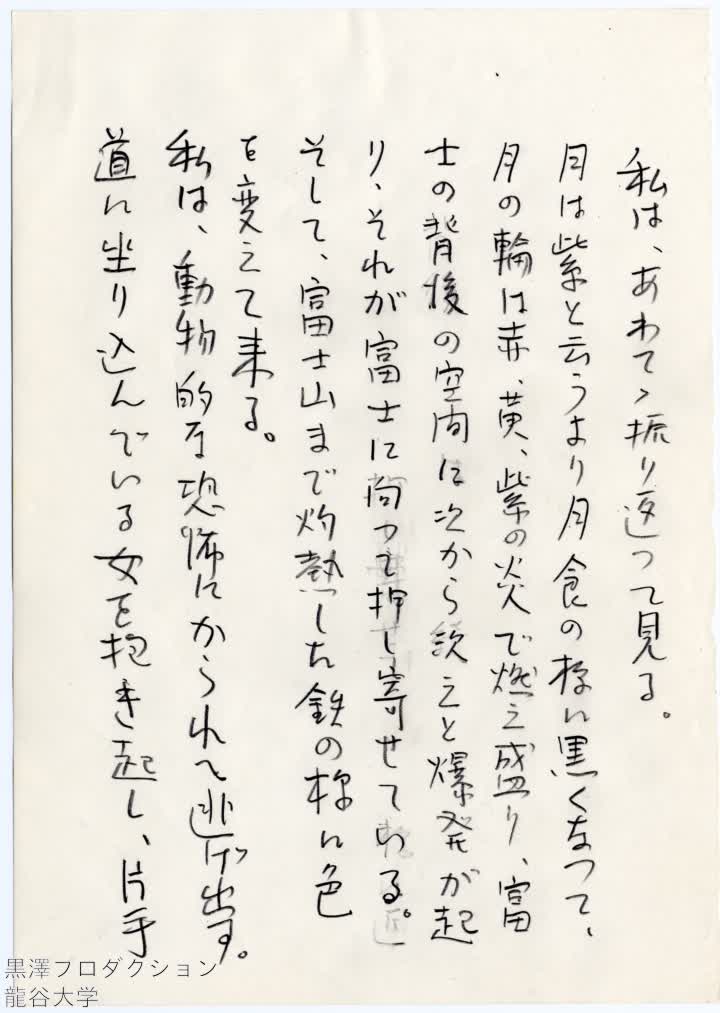 私は、あわてゝ振り返つて見る。
月は紫と云うより月食の様に黒くなつて、
月の輪は赤、黄、紫の炎で燃え盛り、富
士の背後の空間に次から次えと爆発が起
り、それが富士に向つて押し寄せている。
そして、富士山まで灼熱した鉄の様に色
を変えて来る。
私は、動物的な恐怖にかられて逃げ出す。
道に坐り込んでいる女を抱き起し、片手
黒澤プロダクション
龍谷大学